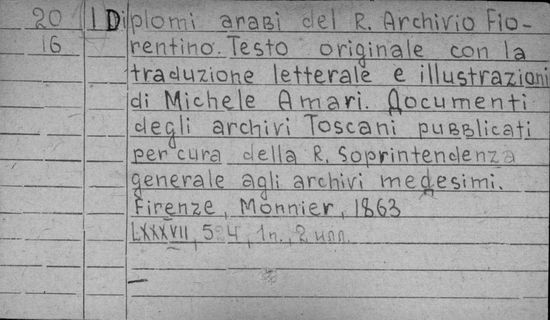 20 I Diplomi arabi del R. Archivio Fio-
16 rentino. Testo originale con la
traduzione letterale e illustrazioni
di Michele Amari. Documenti
degli archivi Toscani pubblicati
per cura della R. Soprintendenza
generale agli archivi medesimi.
Firenze, Monnier, 1863
LXXXVII, 524, 1 п., 2 илл.